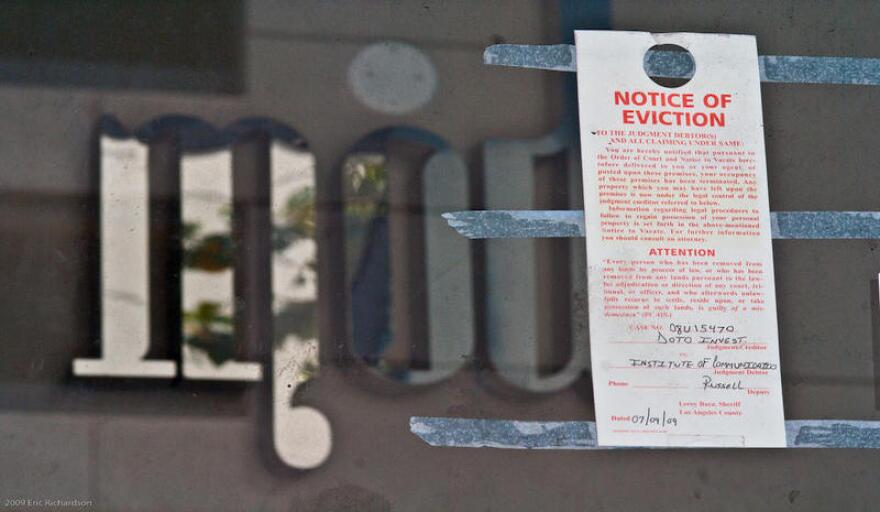 NOTICE OF
EVICTION
TO THE JUDGMENT DEBTOR(S)
AND ALL CLAIMING UNDER SAME:
You are hereby notified that pursuant to
the Order of Court and Notice to Vacate here-
tofore delivered to you or your agent, or
posted upon these premises, your occupancy
of these premises has been terminated. Any
property which you may have left upon the
premises is now under the legal control of the
judgment creditor referred to below.
Information regarding legal procedures to
follow to regain possession of your personal
property is set forth in the above-mentioned
Notice to Vacate. For further information
you should consult an attorney.
ATTENTION
"Every person who has been removed from
any lands by process of law, or who has been
removed from any lands pursuant to the law-
ful adjudication or direction of any court, tri-
bunal, or officer, and who afterwards unlaw-
fully returns to settle, reside upon, or take
possession of such lands, is guilty of a mis-
demeanor" (PC 419.)
CASE NO. 08U15470
DOTO INVEST.
Judgment Creditor
vs.
INSTITUTE OF
Judgment Debtor
Phone RUSSELL
Deputy
Leroy Baca, Sheriff
Los Angeles County
Dated 07/09/09
2009 Eric Richardson